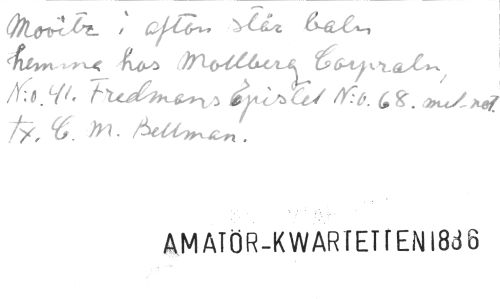 Movitz i afton står baln
hemma hos Mollberg Corpraln,
N:o. 41. Fredmans Epistel N:o. 68. mel-not.
Tx. C. M. Bellman.
AMATÖR-KWARTETTEN 1886